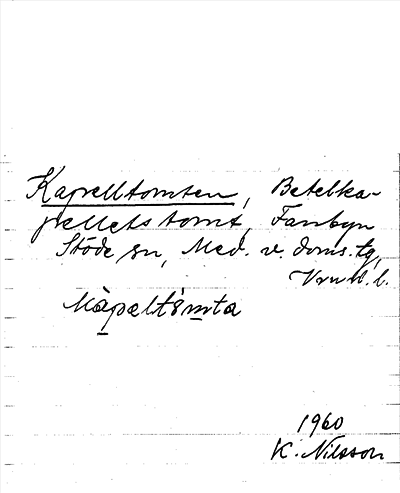 Kapelltomten, Betelka-
pellets tomt, Fanbyn
Stöde sn, Med. v. doms.tg,
Vrnl. l.
kàpaltómta
1960
K. Nilsson